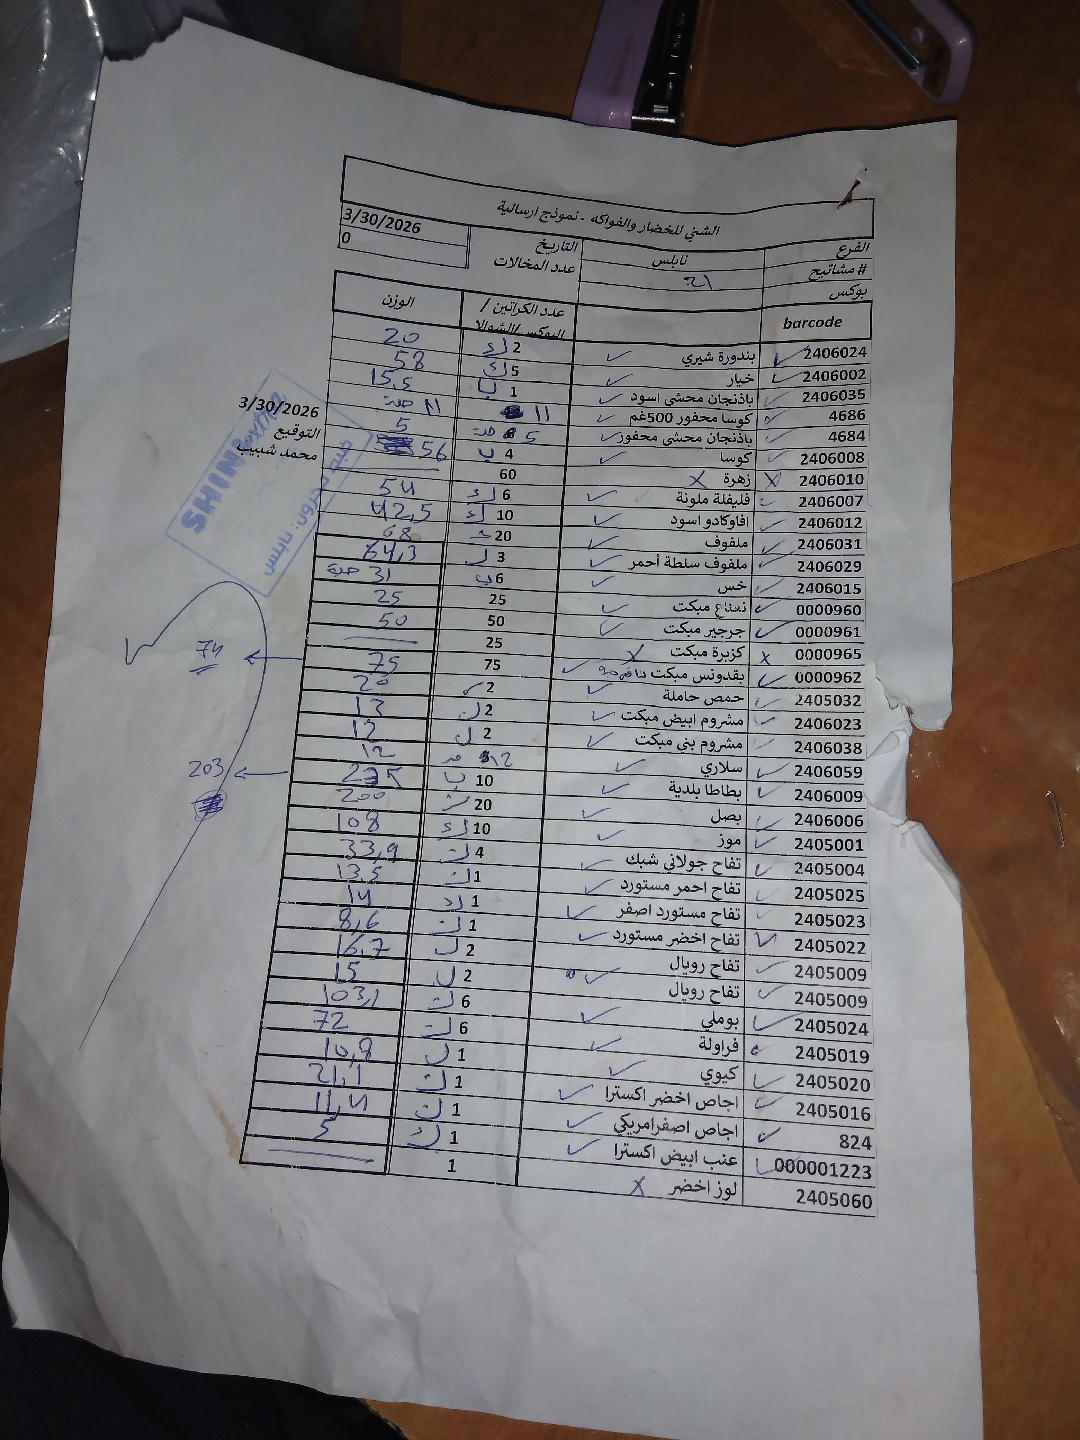 الشني للخضار والفواكه - نموذج ارسالية
الفرع نابلس التاريخ 3/30/2026
# مشاتيح 21 عدد المخالات 0
بوكس
barcode عدد الكراتين / البوكس/الشوالا الوزن
2406024 بندورة شيري 2 20
2406002 خيار 5 58
2406035 باذنجان محشي اسود 1 ب 15,5
4686 كوسا محفور 500غم 11 11 حبة
4684 باذنجان محشي محفور 5 5
2406008 كوسا 4 ب 56
2406010 زهرة X 60
2406007 فليفلة ملونة 6 54
2406012 افاوكادو اسود 10 42,5
2406031 ملفوف 20 68
2406029 ملفوف سلطة أحمر 3 64,3
2406015 خس 6 ب 31 حبة
0000960 نعناع مبكت 25 25
0000961 جرجير مبكت 50 50
0000965 كزبرة مبكت X 25
0000962 بقدونس مبكت 75 75
74
2405032 حمص حاملة 2 20
2406023 مشروم ابيض مبكت 2 13
2406038 مشروم بني مبكت 2 12
2406059 سلاري 12 12
2406009 بطاطا بلدية 10 ب
203
2406006 بصل 20 200
2405001 موز 10 108
2405004 تفاح جولاني شبك 4 33,9
2405025 تفاح احمر مستورد 1 13,5
2405023 تفاح مستورد اصفر 1 14
2405022 تفاح اخضر مستورد 1 8,6
2405009 تفاح رويال 2 16,7
2405009 تفاح رويال 2 15
2405024 بوملي 6 103,1
2405019 فراولة 6 72
2405020 كيوي 1 10,8
2405016 اجاص اخضر اكسترا 1 21,1
824 اجاص اصفرامريكي 1 11,4
000001223 عنب ابيض اكسترا 1 5
2405060 لوز اخضر X 1
3/30/2026
التوقيع
محمد شبيب
SHINI